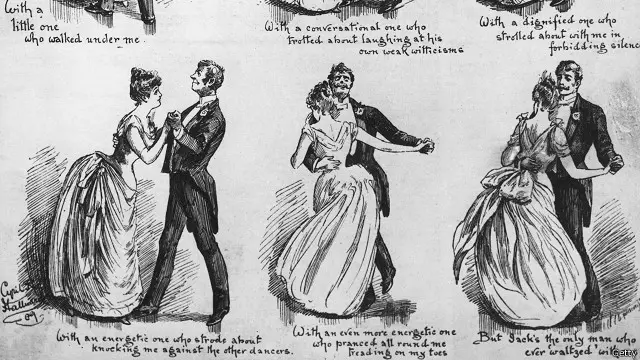 With a
little one
who walked under me
With a conversational one who
trotted about laughing at his
own weak witticisms
With a dignified one who
strolled about with me in
forbidding silence
With an energetic one who strode about
knocking me against the other dancers.
With an even more energetic one
who pranced all round me
treading on my toes
But Jack's the only man who
ever waltzed
Getty